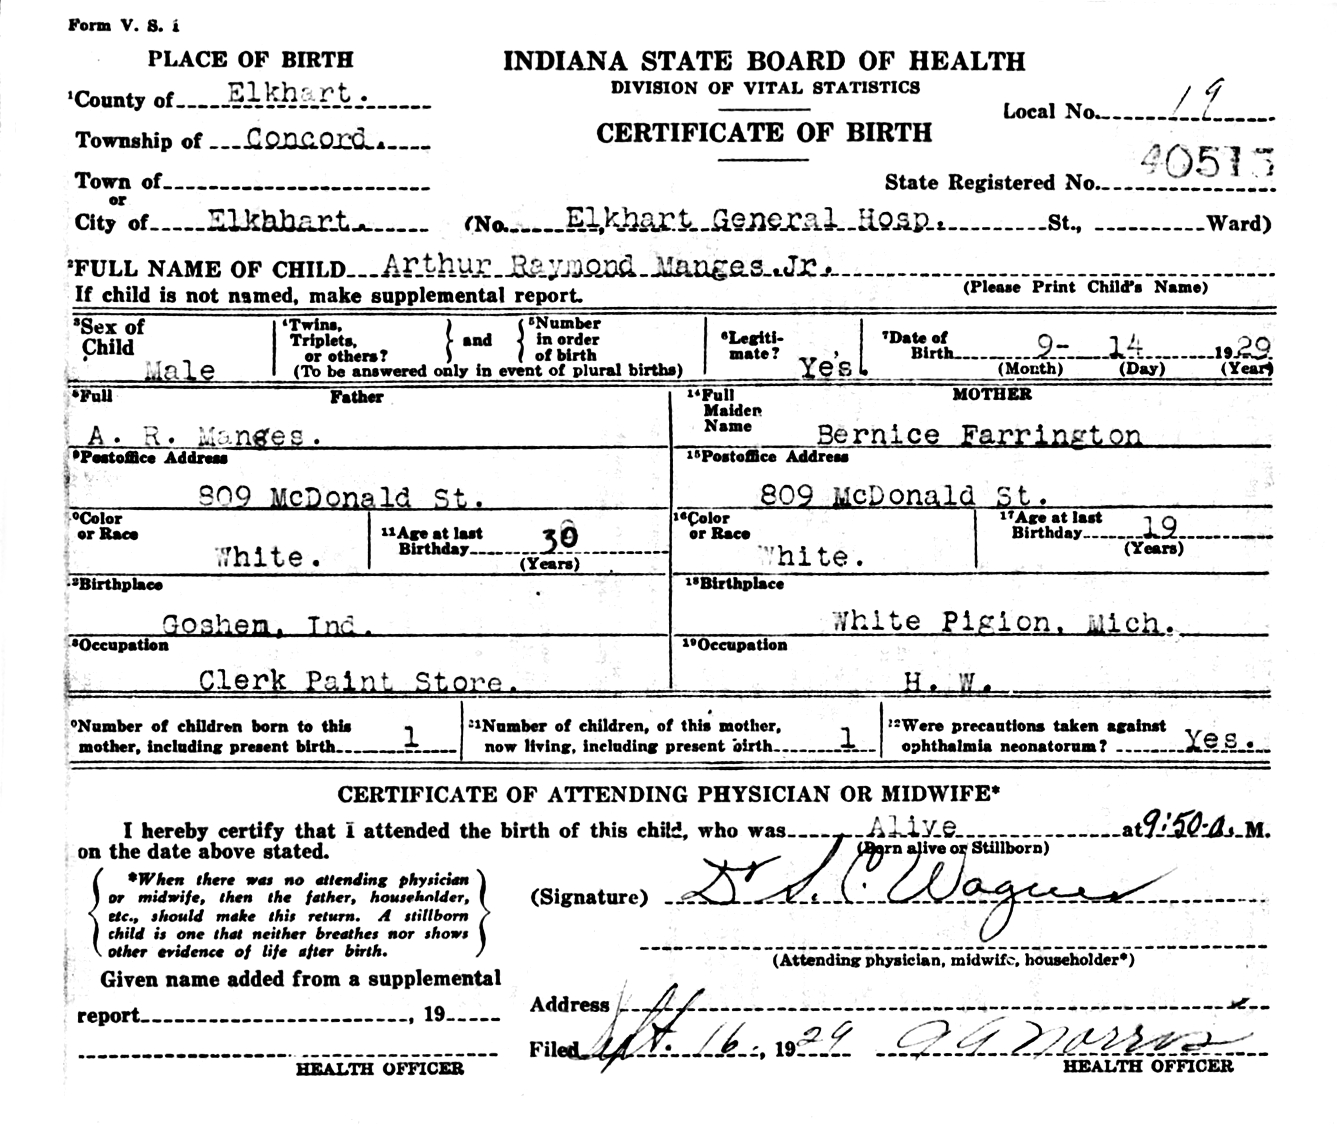 Form V. S. 1
PLACE OF BIRTH
INDIANA STATE BOARD OF HEALTH
DIVISION OF VITAL STATISTICS
CERTIFICATE OF BIRTH
¹County of Elkhart.
Local No. 19
Township of Concord.
State Registered No. 40515
Town of
or
City of Elkhhart. (No. Elkhart General Hosp. St., Ward)
²FULL NAME OF CHILD Arthur Raymond Manges.Jr.
If child is not named, make supplemental report.
(Please Print Child's Name)
³Sex of Child Male
⁴Twins, Triplets, or others? } and { ⁵Number in order of birth
(To be answered only in event of plural births)
⁶Legiti-mate? Yes.
⁷Date of Birth 9- 14 1929
(Month) (Day) (Year)
⁸Full Father
A. R. Manges.
¹⁴Full Maiden Name MOTHER
Bernice Farrington
⁹Postoffice Address
809 McDonald St.
¹⁵Postoffice Address
809 McDonald St.
⁰Color or Race White.
¹¹Age at last Birthday 30
(Years)
¹⁶Color or Race White.
¹⁷Age at last Birthday 19
(Years)
²Birthplace
Goshen, Ind.
¹⁸Birthplace
White Pigion, Mich.
³Occupation
Clerk Paint Store.
¹⁹Occupation
H. W.
⁰Number of children born to this
mother, including present birth 1
²¹Number of children, of this mother,
now living, including present birth 1
²²Were precautions taken against
ophthalmia neonatorum? Yes.
CERTIFICATE OF ATTENDING PHYSICIAN OR MIDWIFE*
I hereby certify that I attended the birth of this child, who was Alive at 9:50 a. M.
on the date above stated.
(Born alive or Stillborn)
*When there was no attending physician
or midwife, then the father, householder,
etc., should make this return. A stillborn
child is one that neither breathes nor shows
other evidence of life after birth.
(Signature) Dr S. C. Wagner
(Attending physician, midwife, householder*)
Given name added from a supplemental
report , 19
HEALTH OFFICER
Address
Filed Sept. 16, 1929 Norris
HEALTH OFFICER